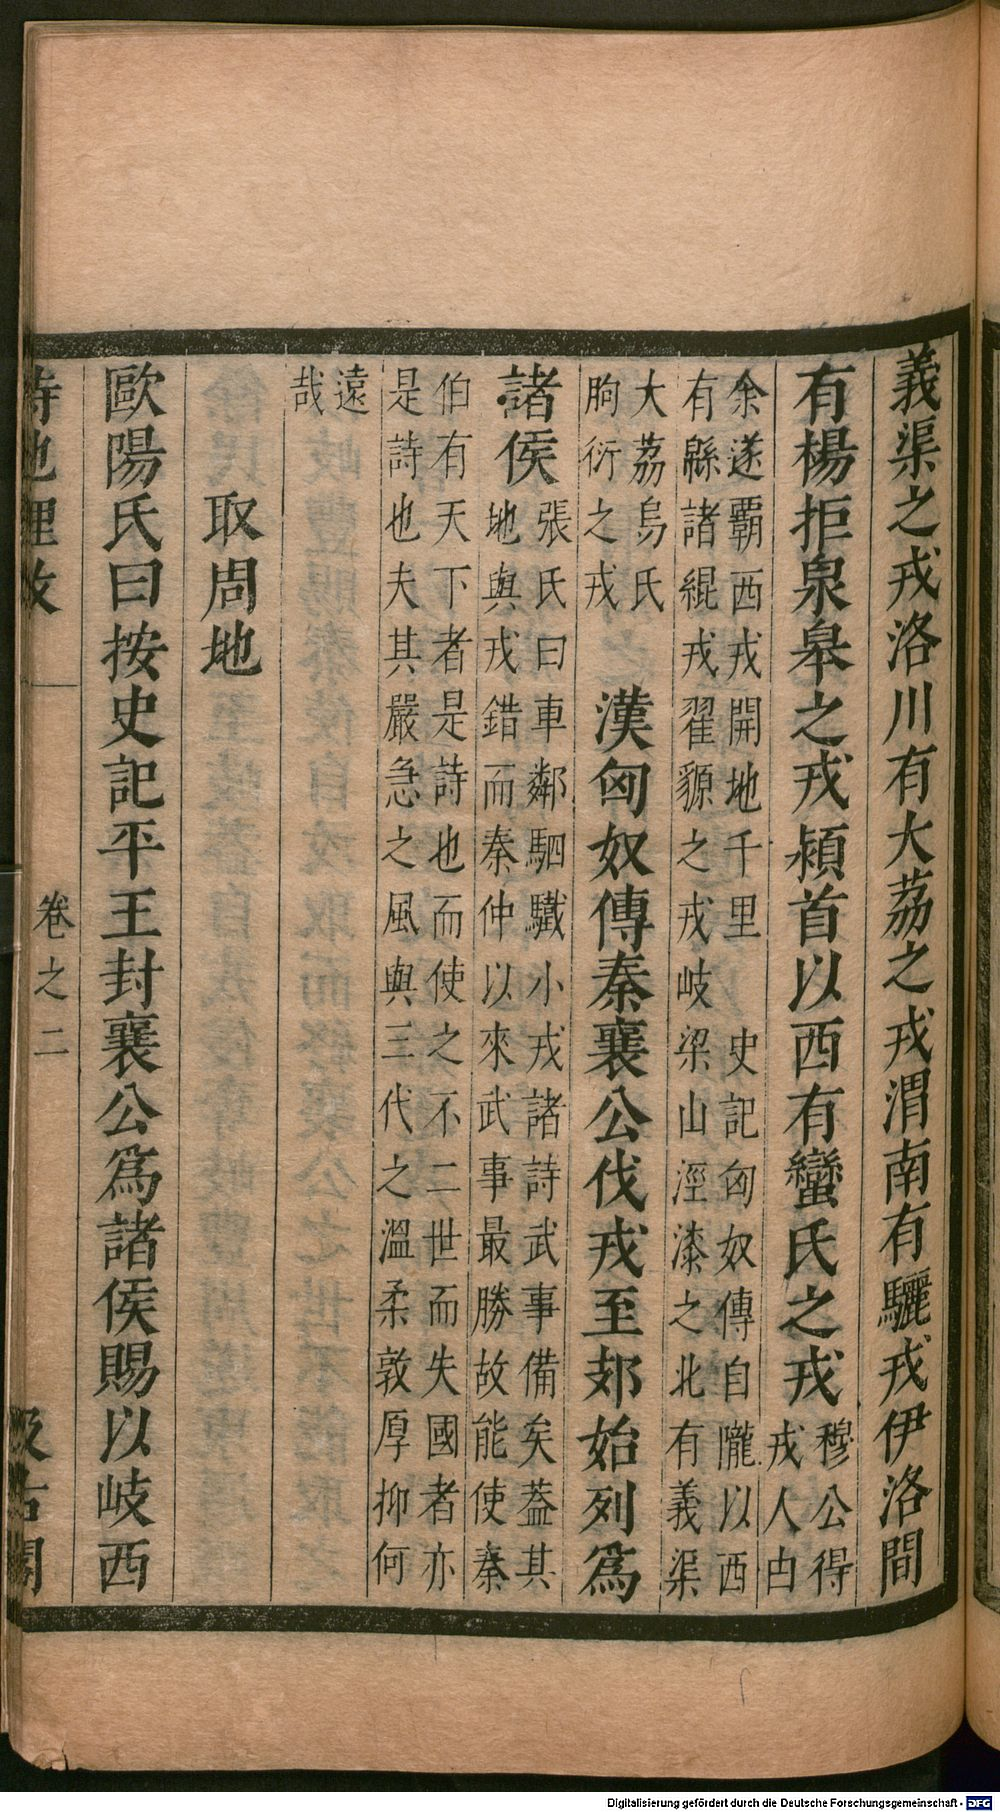 義渠之戎洛川有大荔之戎渭南有驪戎伊洛間
有楊拒泉皋之戎潁首以西有蠻氏之戎
穆公得
戎人由
余遂霸西戎開地千里 史記匈奴傳自隴以西
有緜諸緄戎翟䝠之戎岐梁山涇漆之北有義渠
大荔烏氏
朐衍之戎
漢匈奴傳秦襄公伐戎至郊始列爲
諸侯
張氏曰車鄰駟驖小戎諸詩武事備矣葢其
地與戎錯而秦仲以來武事最勝故能使秦
伯有天下者是詩也而使之不二世而失國者亦
是詩也夫其嚴急之風與三代之溫柔敦厚抑何
遠
哉
取周地
歐陽氏曰按史記平王封襄公爲諸侯賜以岐西
詩地理攷
卷之二
汲古閣
Digitalisierung gefördert durch die Deutsche Forschungsgemeinschaft - DFG